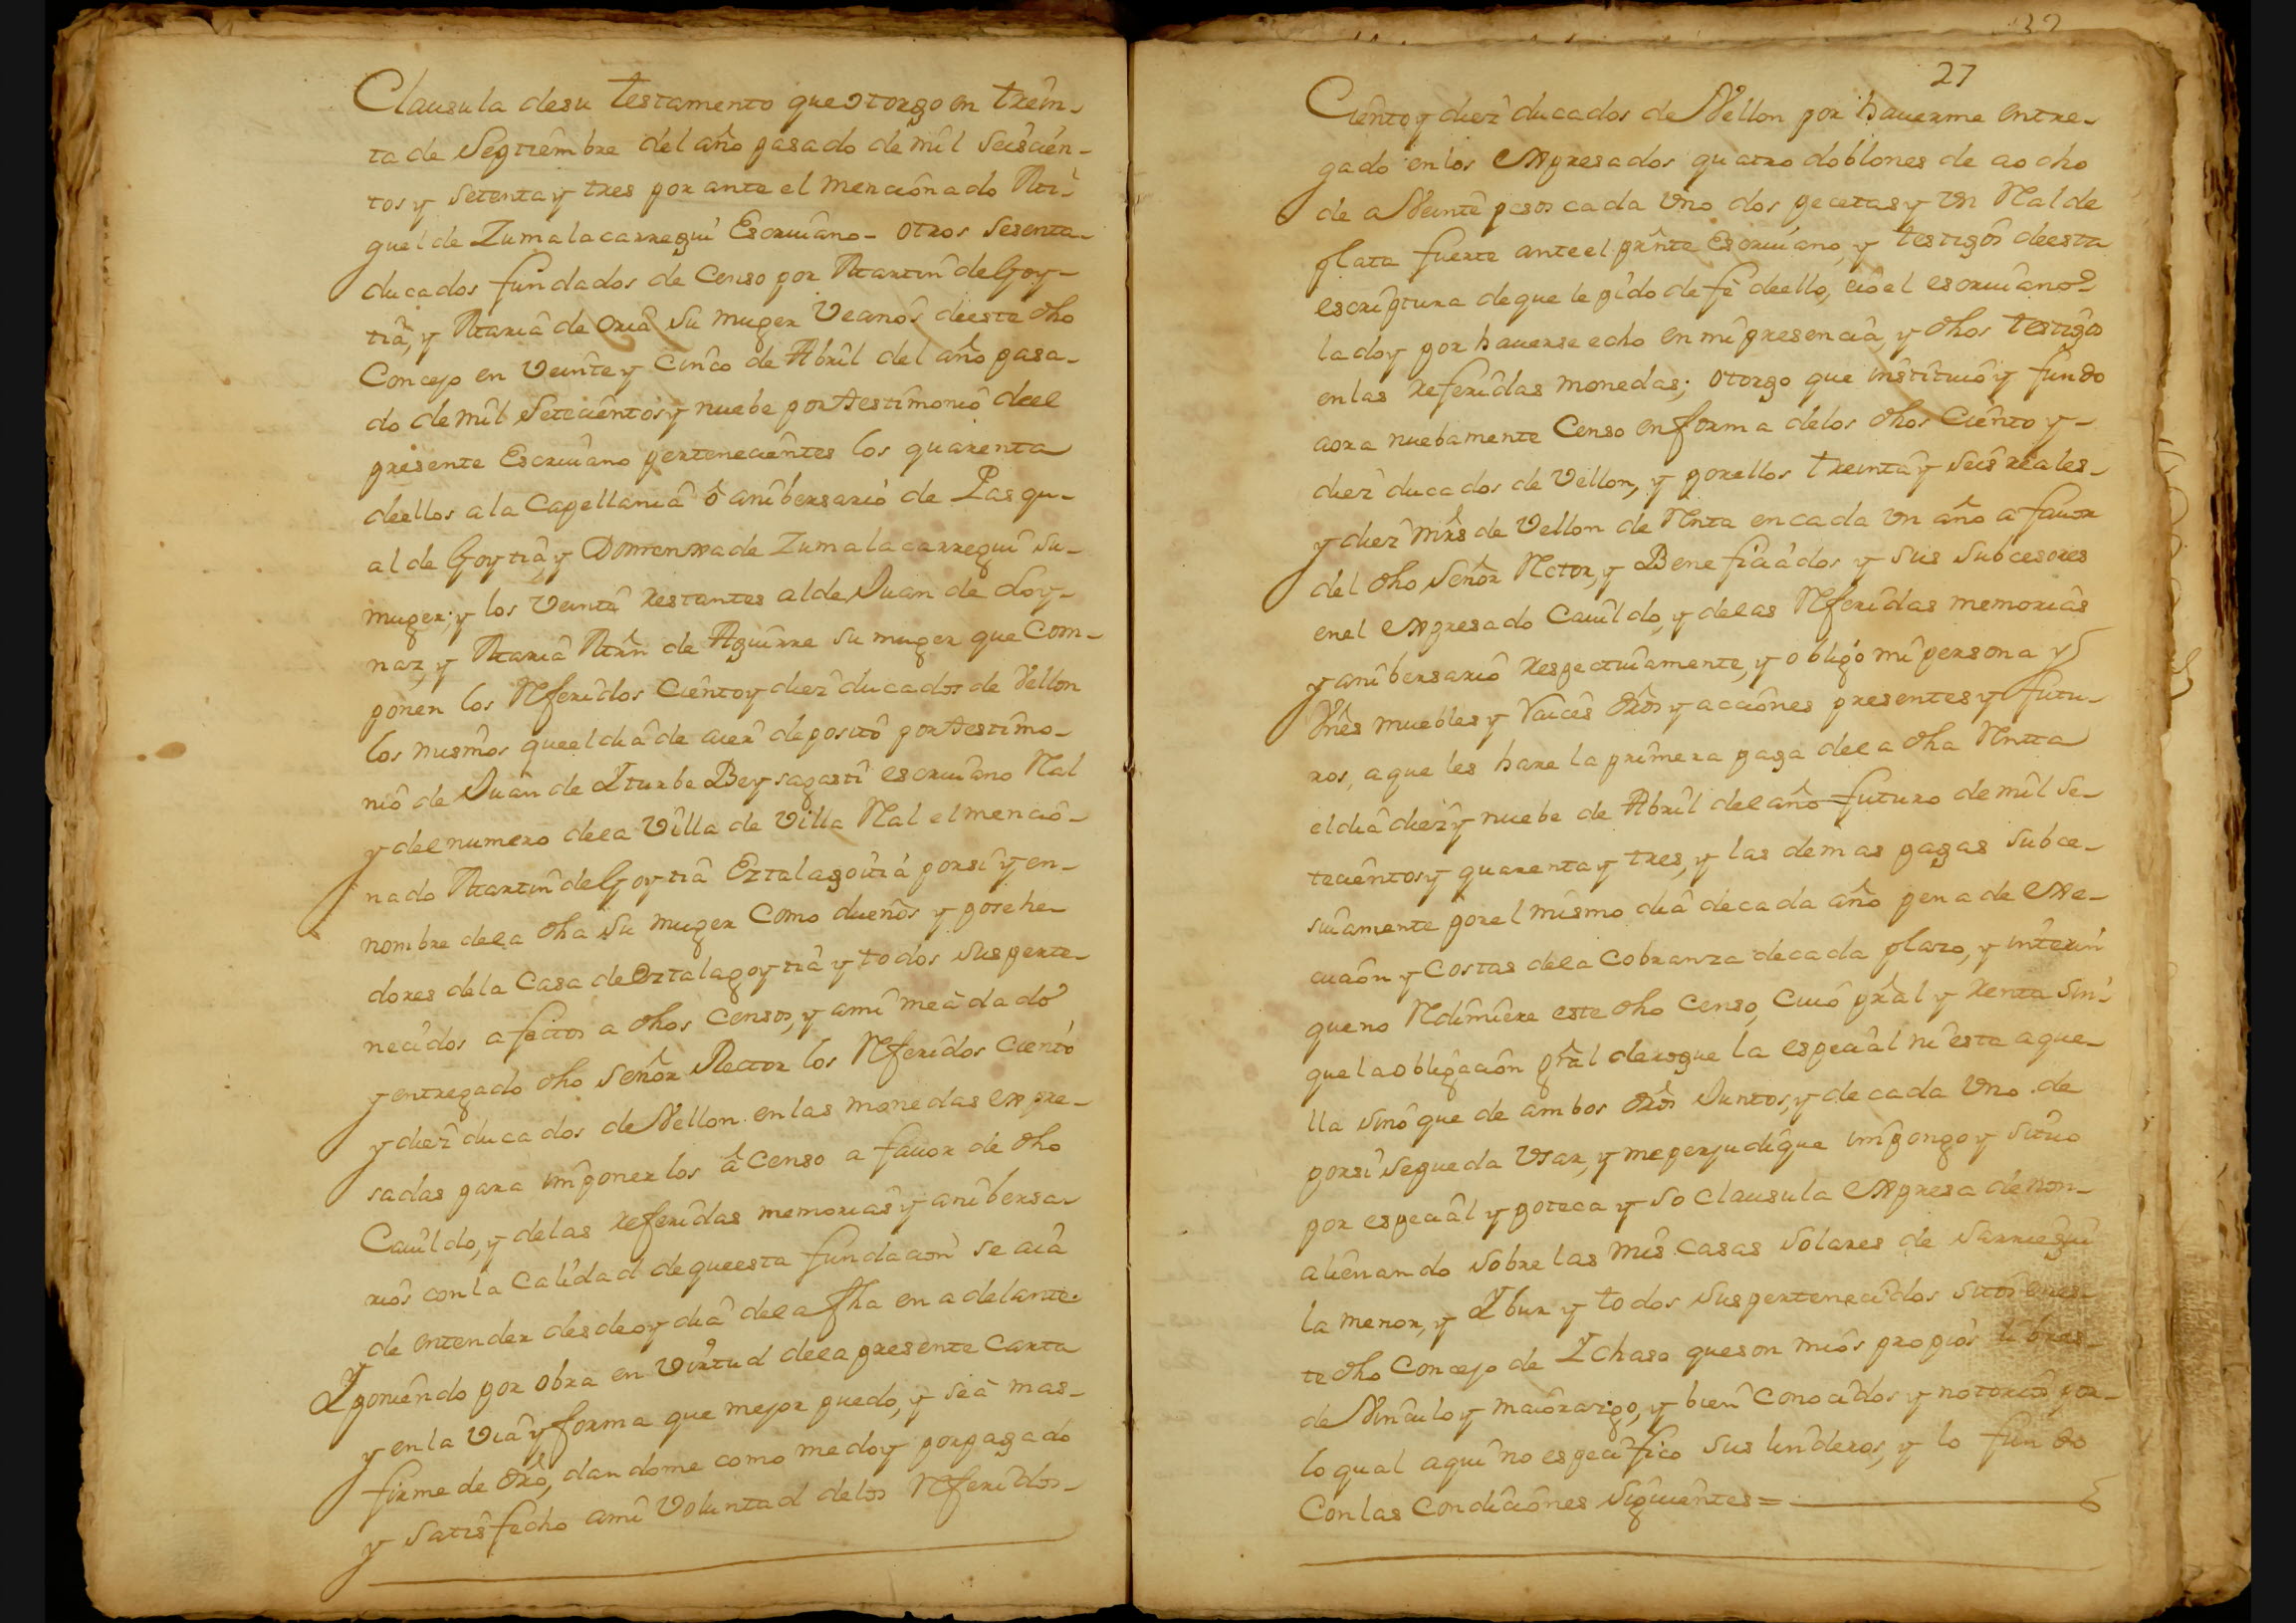 Clausula desu testamento que otorgo en trein-
ta de Septiembre del año pasado de mil seiscien-
tos y setenta y tres por ante el mencionado Mi-
guel de Zumalacarregui Escriuano - otros sesenta
ducados fundados de Censo por Martin de Goy-
tia, y Maria de Oria su muger Vecinos deeste dho
Concejo en Veinte y Cinco de Abril del año pasa-
do de mil Setecientos y nuebe por testimonio deel
presente Escriuano pertenecientes los quarenta
deellos a la Capellania ô anibersario de Pasqu-
al de Goytia, y Domenxa de Zumalacarregui su
muger; y los Veinte restantes al de Juan de Loy-
naz, y Maria Mrn de Aguirre su muger que Com-
ponen los Referidos Ciento y diez ducados de Vellon
los mismos que el dia de aier deposito por testimo-
nio de Juan de Yturbe Beysagasti escriuano Real
y del numero deea Villa de Villa Real el mencio-
nado Martin de Goytia Eztalagoitia por si y en
nombre deea dha su muger Como dueños y posehe-
dores dela Casa de Oztalagoytia y todos sus perte-
necidos afectos a dhos Censos, y ami me â dado
y entregado dho Señor Rector los Referidos Ciento
y diez ducados de Vellon en las monedas expre-
sadas para imponerlos â Censo a fauor de dho
Cauildo, y de las referidas memorias y anibersa-
rios con la Calidad de que esta fundacion se aia
de entender desde oy dia deea fha en adelante.
Y poniendo por obra en virtud deea presente Carta
y en la via y forma que mejor puedo, y sea mas
firme de dro, dandome como me doy por pagado
y satisfecho ami Voluntad delos Referidos
27
Ciento y diez ducados de Vellon por hauerme entre-
gado en los expresados quatro doblones de a ocho
de a Veinte pesos cada Vno dos pecetas y Vn Real de
plata fuerte ante el prnte Escriuano, y testigos deesta
escriptura de que le pido de fe deello, eio el escriuano
la doy por hauerse echo en mi presencia, y dhos testigos
en las referidas monedas; otorgo que instituio y fundo
aora nuebamente Censo en forma de los dhos Ciento y
diez ducados de Vellon, y por ellos treinta y seis reales
y diez mrs de Vellon de Renta en cada vn año a fauor
del dho Señor Rector, y Beneficiados y sus subcesores
en el expresado Cauildo, y deeas Referidas memorias
y anibersario respectiuamente, y obligo mi persona y
Vnes muebles y raices dros y acciones presentes y futu-
ros, a que les hare la primera paga deea dha Rentta
el dia diez y nuebe de Abril del año futuro de mil se-
tecientos y quarenta y tres, y las demas pagas subce-
siuamente por el mismo dia de cada año pena de exe-
cucion y Costas dela Cobranza de cada plazo, y interin
que no Redimiere este dho Censo, Cuio pral y renta sin
que la obligacion gral derogue la especial ni esta aque-
lla sino que de ambos dros Juntos, y de cada Vno de
por si se pueda Vsar, y me perjudique impongo y situo
por especial ypoteca y so Clausula expresa de non
alienando sobre las mis casas solares de Sarriegui
la menor, y Ybur y todos sus pertenecidos sitos enes-
te dho Concejo de Ychaso que son mios propios libres
de Vinculo y maiorazgo, y bien Conocidos y notorios por
lo qual aqui no especifico sus linderos, y lo fundo
Con las Condiciones Siguientes =